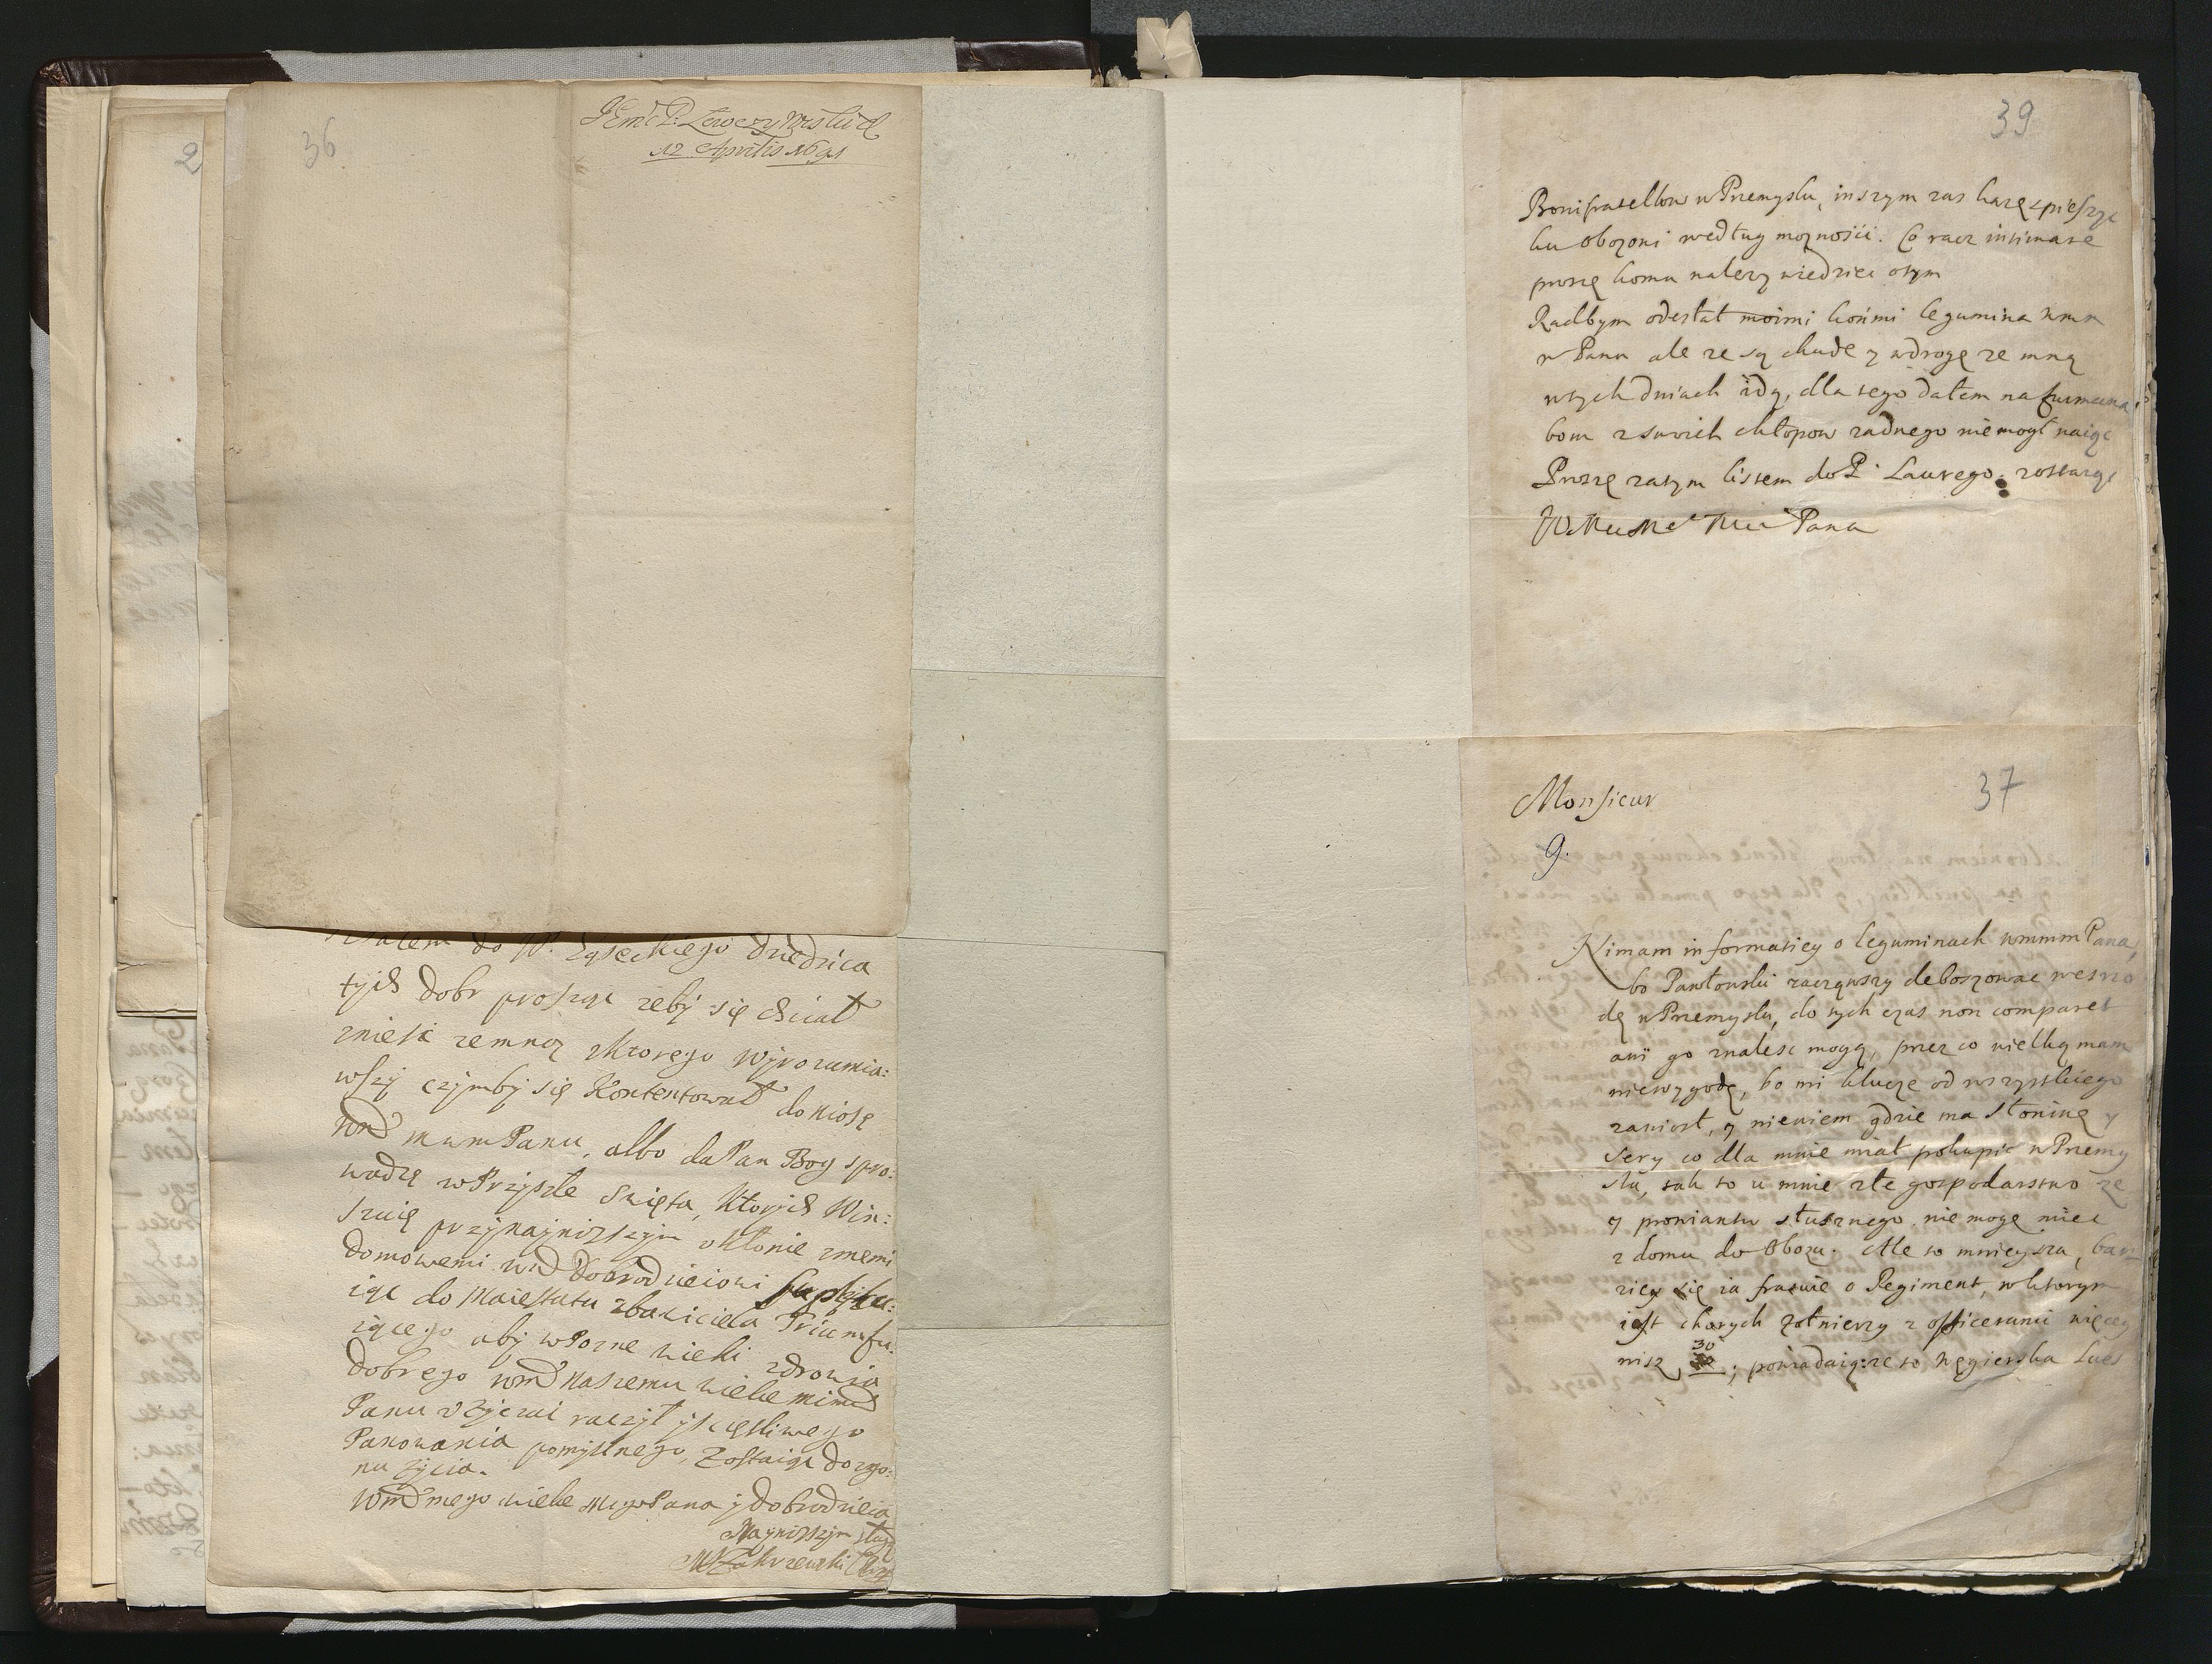 36
12 Aprilis 1691
do dziedzica
tych dobr prosząc zeby się chciał
znieść zemną zktorego wyrozumia:
wszy czymby się Kontentował doniosę
mwm Panu, albo da Pan Bog spro:
wadzę w Przyszłe Swięta, ktorych Win:
szuię przynajnizszym vkłonie zmemi
domowemi wmd Dobrodzieiowi supliku:
iąc do Maiestatu zbawiciela Triumfu:
iącego aby wPozne wieki zdrowia
dobrego wmd naszemu wielce
Panu vzyczać raczył y szczęsliwego
Panowania pomyslnego, Zostaiąc dozgo:
nu zycia.
wmd mego wielce Mego Pana y dobrodzieia
Nayniszym sługą
Zakrzewski
39
Bonifratellow w Przemyslu, inszym zas karę spieszyc
ku obozowi według moznosci. Co racz intimare
proszę komu nalezy wiedziec otym
Radbym odesłał moimi końmi legumina
w Panu ale ze są chude y wdrogę ze mną
wtych dniach idą, dla tego dałem na furmana
bom zswoich chłopow zadnego niemogł naiąc
Proszę zatym listem do P. Laurego. zostaiąc
Pana
37
Monsieur
9.
Nimam informatiey o leguminach wmmm Pana,
bo Pawłowski zacząwszy deboszowac wesrzo
dę w Przemyslu, do tych czas non comparet
ani go znalesc mogą, przez co wielką mam
niewygodę, bo mi klucze od wszystkiego
zaniosł, y niewiem gdzie ma słoninę y
sery co dla mnie miał pokupic w Przemy
slu, tak to u mnie złe gospodarstwo ze
y prowiantu słusznego nie mogę miec
z domu do Obozu. Ale to mnieysza, bar
ziey się ia frasuię o Regiment, w ktorym
iest chorych zołnierzy z officerami więcey
nisz 30; powiadaią: ze to węgierska Lues